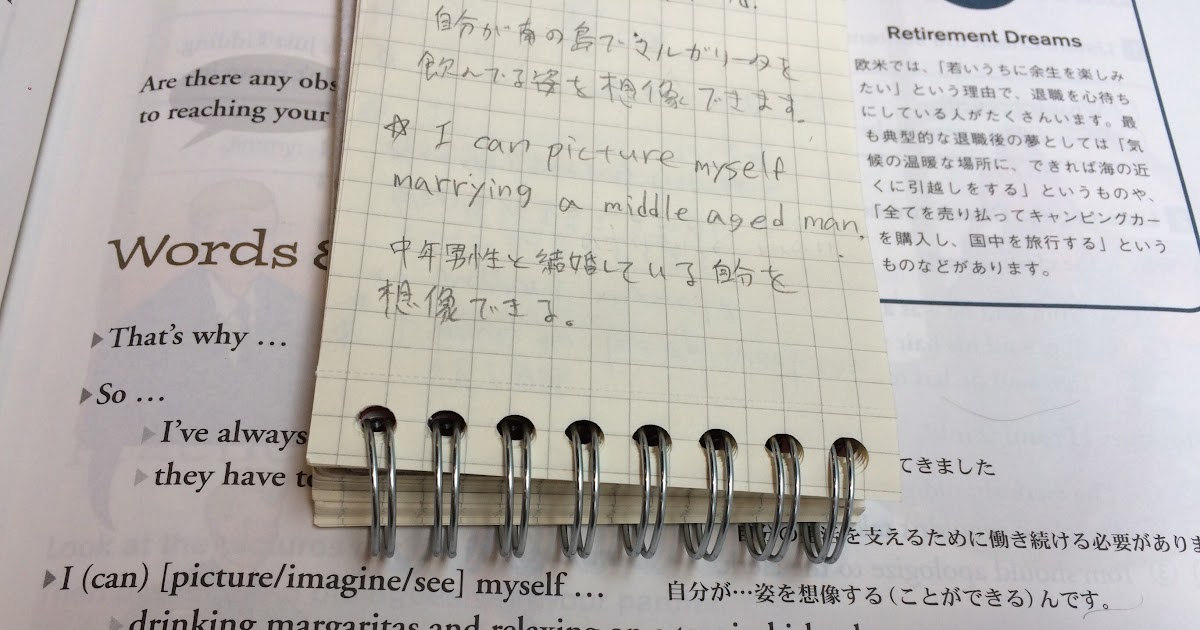 Are there any obs
to reaching your
Words &
▶That's why …
▶So …
▶I've always
▶they have to
▶I (can) [picture/imagine/see] myself …
自分が…姿を想像する（ことができる）んです。
▶drinking margaritas and relaxing on a
自分が南の島でマルガリータを
飲んでる姿を想像できます。
☆ I can picture myself
marrying a middle aged man.
中年男性と結婚している自分を
想像できる。
Retirement Dreams
欧米では、「若いうちに余生を楽しみ
たい」という理由で、退職を心待ち
にしている人がたくさんいます。最
も典型的な退職後の夢としては「気
候の温暖な場所に、できれば海の近
くに引越しをする」というものや、
「全てを売り払ってキャンピングカー
を購入し、国中を旅行する」という
ものなどがあります。
てきました
を支えるために働き続ける必要があります